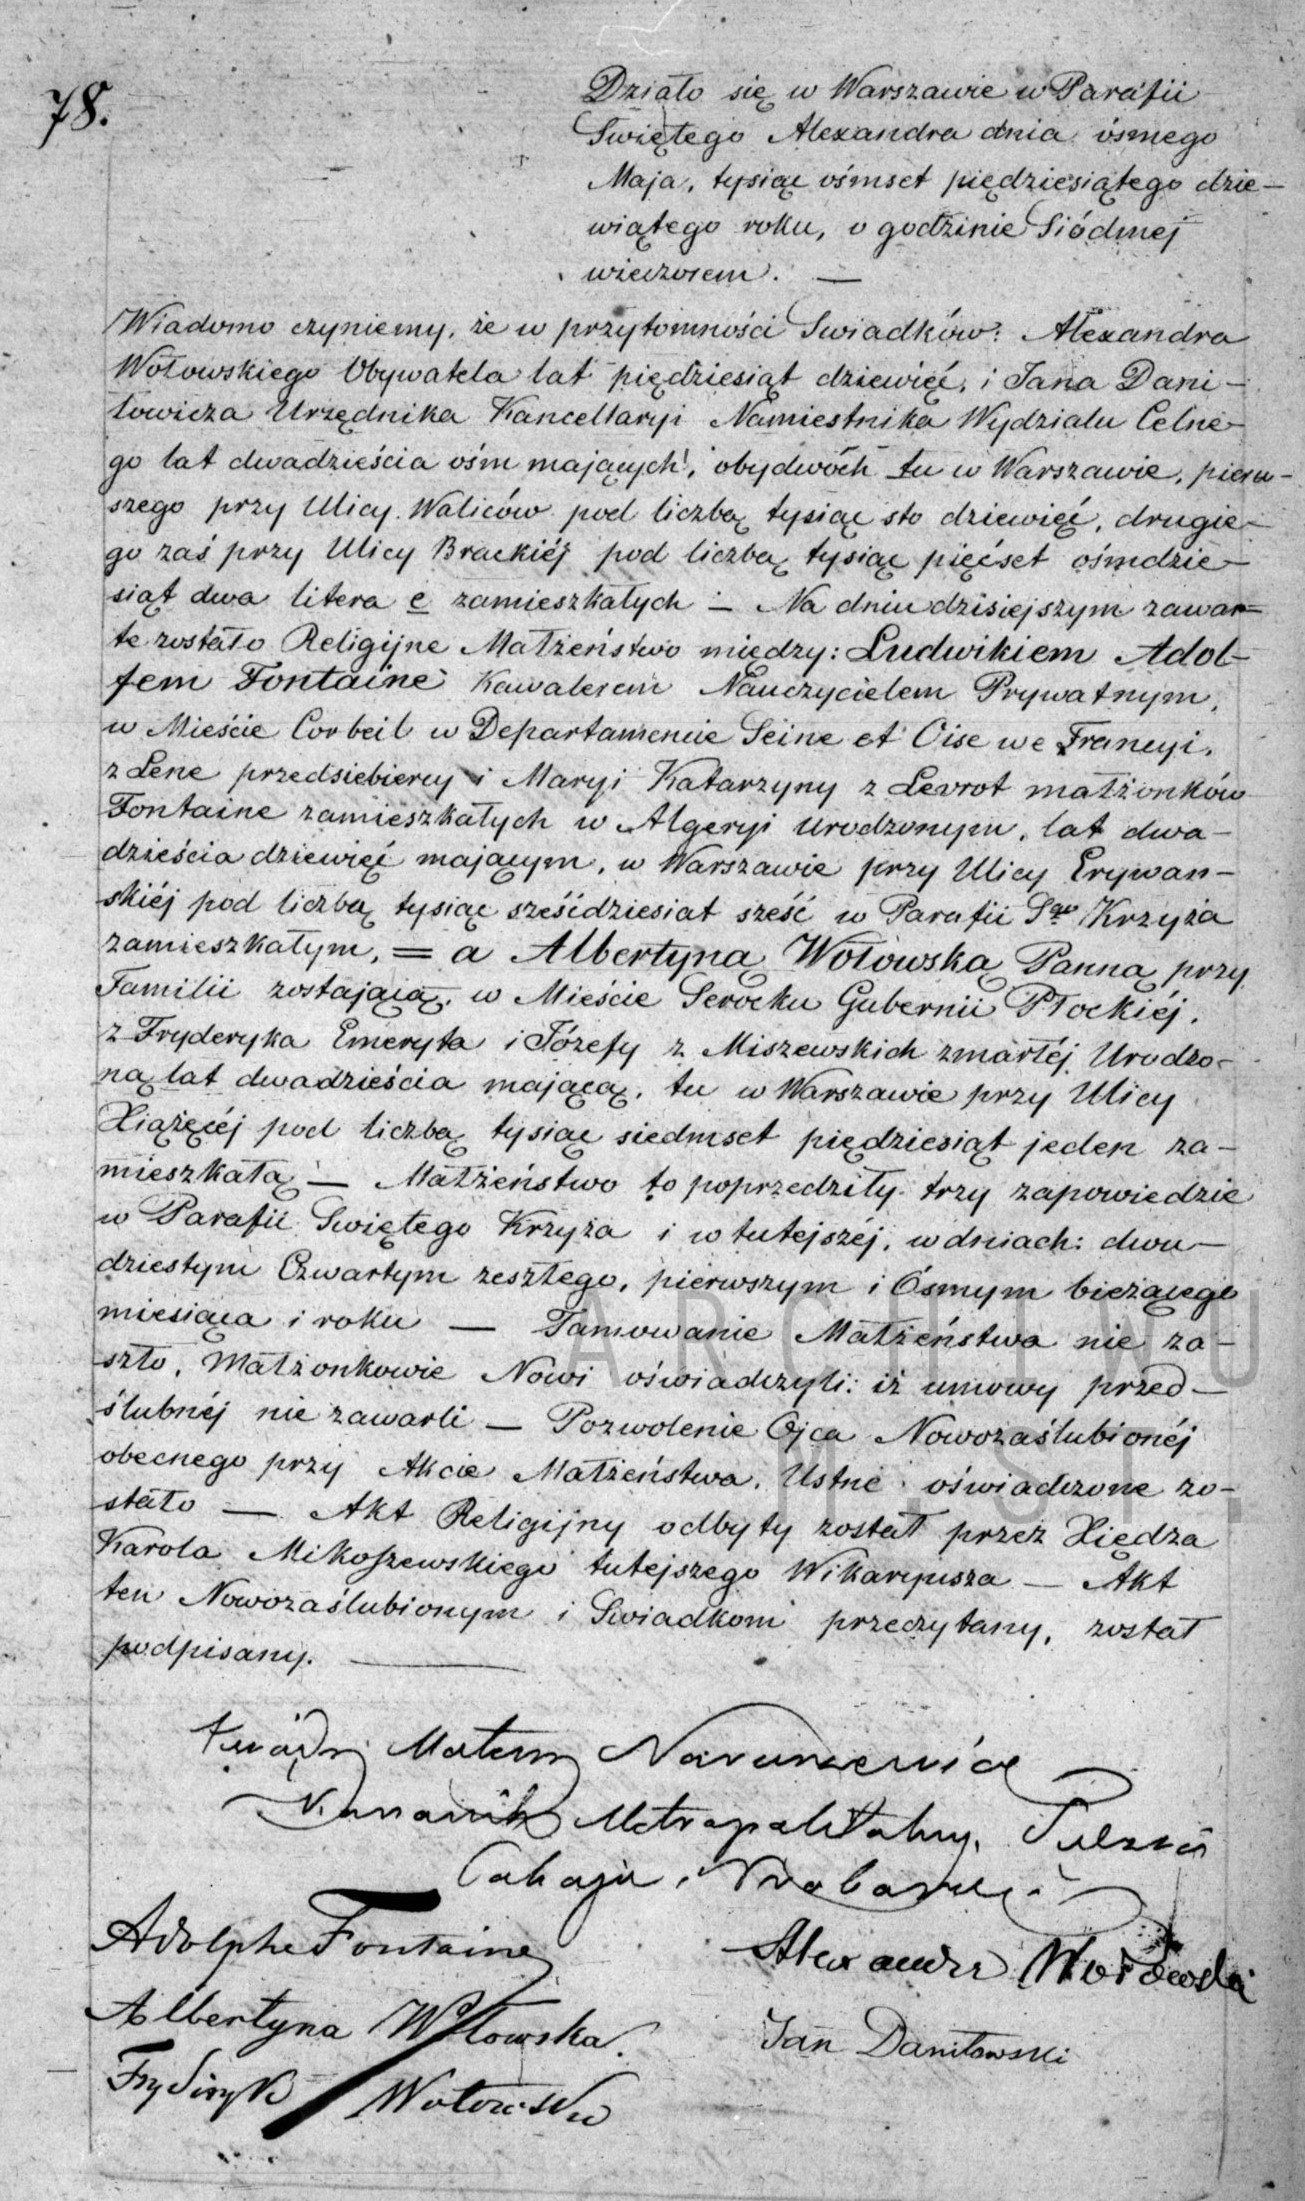 78.
Działo się w Warszawie w Parafii
Świętego Alexandra dnia ósmego
Maja, tysiąc ośmset piędziesiątego dzie-
wiątego roku, o godzinie Siódmej
wieczorem. —
Wiadomo czyniemy, że w przytomności Swiadków: Alexandra
Wołowskiego Obywatela lat piędziesiąt dziewięć, i Jana Dani-
łowicza Urzędnika Kancellaryi Namiestnika Wydziału Celne-
go lat dwadzieścia ośm mających, obydwóch tu w Warszawie, pierw-
szego przy Ulicy Waliców pod liczbą tysiąc sto dziewięć, drugie-
go zaś przy Ulicy Brackiéj pod liczbą tysiąc pięćset ośmdzie-
siąt dwa litera e zamieszkałych — Na dniu dzisiejszym zawar-
te zostało Religijne Małżeństwo między: Ludwikiem Adol-
fem Fontaine Kawalerem Nauczycielem Prywatnym,
w Mieście Corbeil w Departamencie Seine et Oise we Francyi,
z Lene przedsiebiercy i Maryi Katarzyny z Levrot małżonków
Fontaine zamieszkałych w Algeryi urodzonym, lat dwa-
dzieścia dziewięć mającym, w Warszawie przy Ulicy Erywan-
skiéj pod liczbą tysiąc sześćdziesiat sześć w Parafii Sgo Krzyża
zamieszkałym, = a Albertyną Wołowską Panną przy
Familii zostającą, w Mieście Serocku Gubernii Płockiéj,
z Fryderyka Emeryta i Józefy z Miszewskich zmarłéj Urodzo-
ną lat dwadzieścia mającą, tu w Warszawie przy Ulicy
Xiążęcéj pod liczbą tysiąc siedmset pięдziesiąt jeden za-
mieszkałą — Małżeństwo to poprzedziły trzy zapowiedzie
w Parafii Swiętego Krzyża i w tutejszéj, w dniach: dwu-
dziestym Czwartym zeszłego, pierwszym i Ósmym bieżącego
miesiąca i roku — Tamowanie Małżeństwa nie za-
szło, Małżonkowie Nowi oświadczyli: iż umowy przed-
ślubnéj nie zawarli — Pozwolenie Ojca Nowozaślubionéj
obecnego przy Akcie Małżeństwa, Ustne oświadczone zo-
stało — Akt Religijny odbyty został przez Xiędza
Karola Mikoszewskiego tutejszego Wikaryusza — Akt
ten Nowozaślubionym i Swiadkom przeczytany, został
podpisany. —
Xiądz Mateusz Naruszewicz
Kanonik Metropolitalny,
Adolphe Fontaine
Alexander Wołowski
Albertyna Wołowska.
Jan Daniłowski
Fryderyk Wołowski
ARCHIWUM